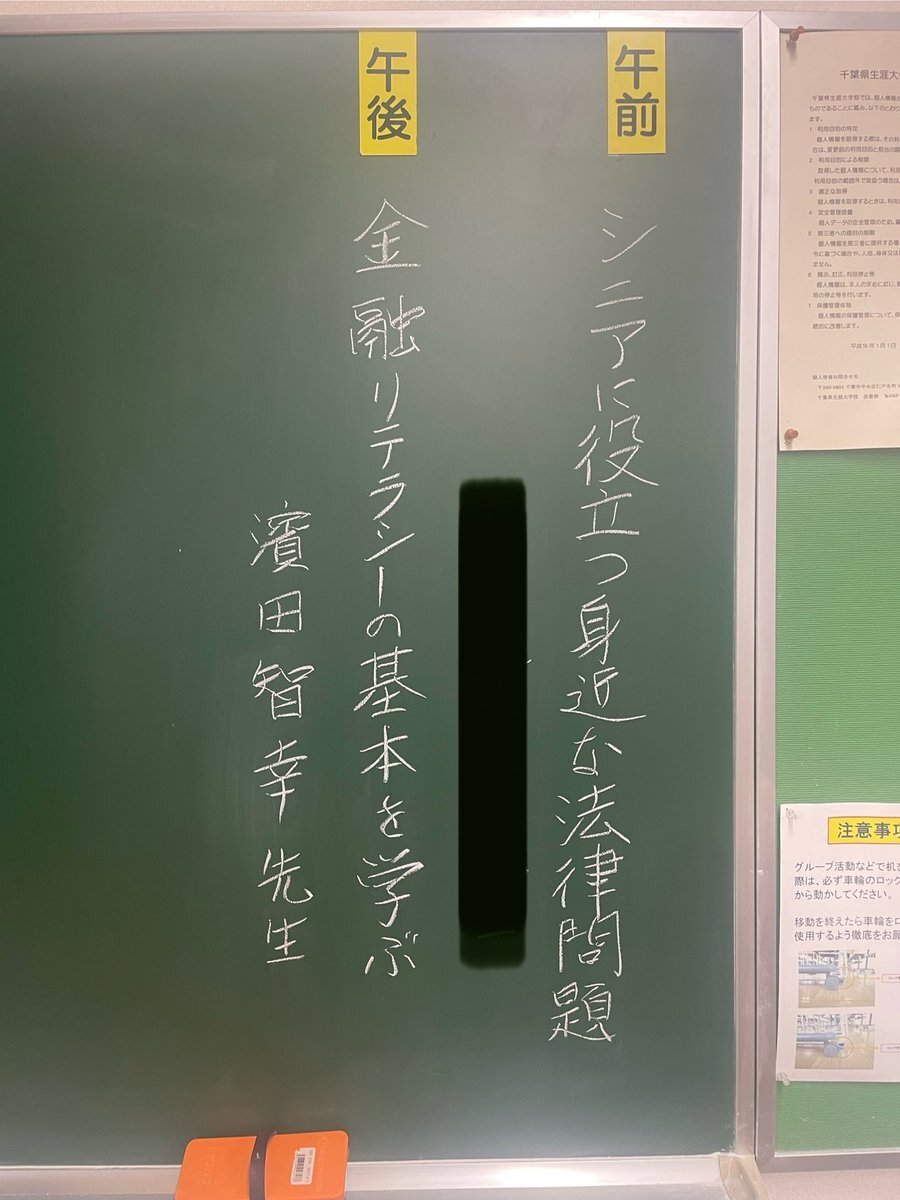 午前
シニアに役立つ身近な法律問題
午後
金融リテラシーの基本を学ぶ
濱田智幸先生
千葉県生涯大
千葉県生涯大学校では、個人情報が
ものであることに鑑み、以下のとおり
ます。
1 利用目的の特定
個人情報を取得する際は、その利
合は、変更前の利用目的と相当の関
2 利用目的による制限
取得した個人情報について、利用
利用目的の範囲外で取扱う場合は、
3 適正な取得
個人情報を取得するときは、利用
4 安全管理措置
個人データの安全管理のため、漏
5 第三者への提供の制限
個人情報を第三者に提供する場
令に基づく場合や、人命、身体又は
ません。
6 開示、訂正、利用停止等
個人情報は、本人の求めに応じ、開
用の停止等を行います。
7 保護管理体制
個人情報の保護管理について、保
続的に改善します。
個人情報お問合せ先
注意事項
グループ活動などで机を
際は、必ず車輪のロック
から動かしてください。
移動を終えたら車輪をロ
使用するよう徹底をお願